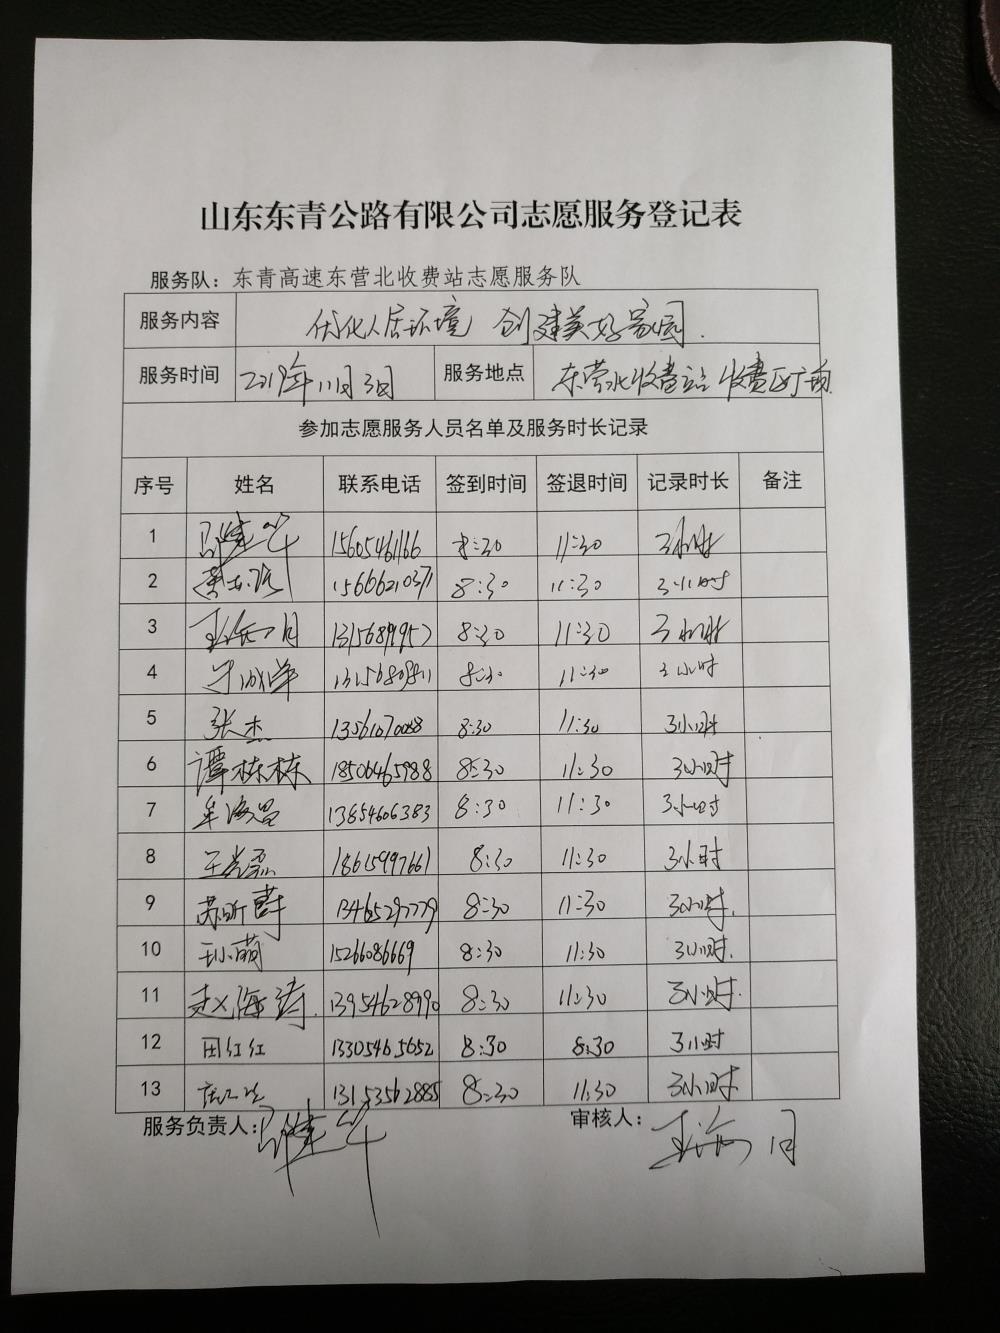 山东东青公路有限公司志愿服务登记表
服务队：东青高速东营北收费站志愿服务队
服务内容 优化人居环境 创建美好家园.
服务时间 2019年11月3日 服务地点 东营北收费站 收费区广场
参加志愿服务人员名单及服务时长记录
序号 姓名 联系电话 签到时间 签退时间 记录时长 备注
1 15605461166 8:30 11:30 3小时
2 15666210371 8:30 11:30 3小时
3 13156899957 8:30 11:30 3小时
4 8:30 11:30 3小时
5 张杰 13561070088 8:30 11:30 3小时
6 谭栋栋 18506465988 8:30 11:30 3小时
7 牟海昌 13854606383 8:30 11:30 3小时
8 王光磊 18615997661 8:30 11:30 3小时
9 苏昕蔚 13465297779 8:30 11:30 3小时.
10 王小萌 15266086669 8:30 11:30 3小时.
11 赵海涛. 13954628990 8:30 11:30 3小时.
12 田红红 13305465652 8:30 8:30 3小时
13 13153562885 8:30 11:30 3小时
服务负责人： 审核人：